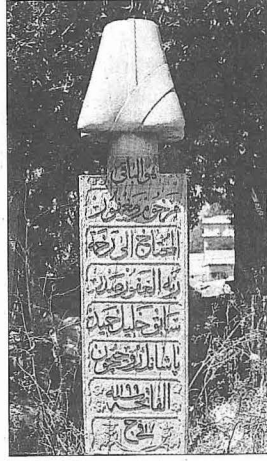 هو الباقي
مرحوم و مغفور
المحتاج الى رحمة
ربه الغفور صدر
سابق خليل حميد
پاشانك روحيچون
الفاتحه ١١٩٩